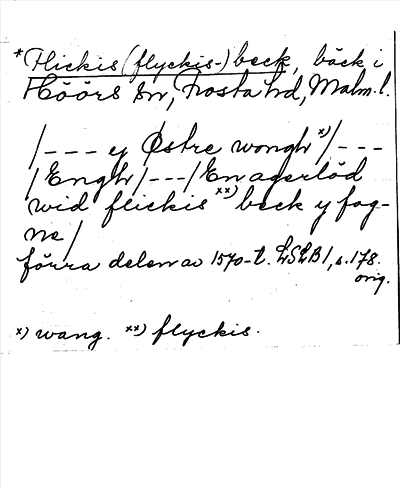 *Flickis (flyckis-) beck, bäck i
Höörs sn, Frosta hd, Malm. l.
/--- y Østre wongh x)/---
/Engh/---/En agerlöd
wid flickis xx) beck y fog-
ne/
förra delen av 1570-t. LSLB 1, s. 178.
orig.
x) wang. xx) flyckis.